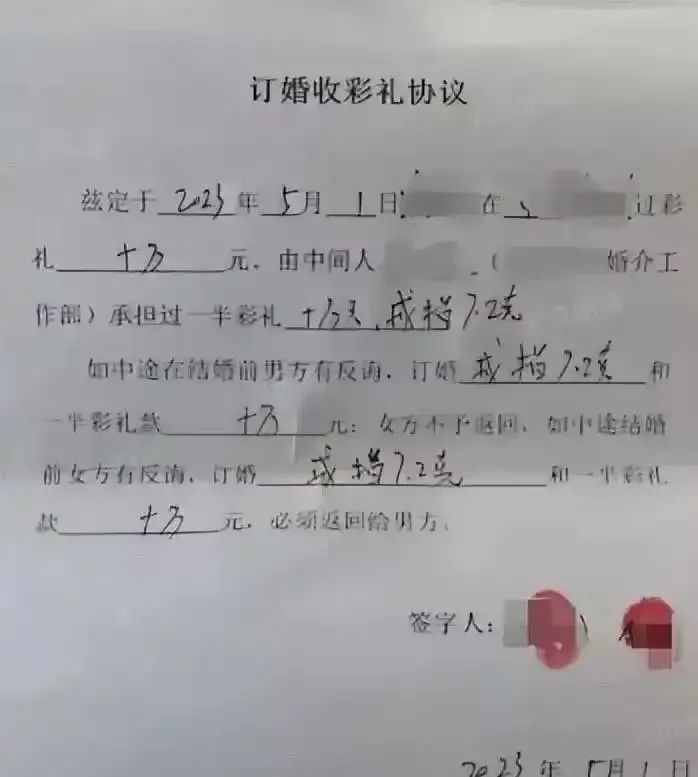 订婚收彩礼协议
兹定于 2023 年 5 月 1 日 在 过彩
礼 十万 元，由中间人 （ 婚介工
作部）承担过一半彩礼 十万元，戒指7.2克
如中途在结婚前男方有反悔，订婚 戒指7.2克 和
一半彩礼款 十万 元；女方不予返回，如中途结婚
前女方有反悔，订婚 戒指7.2克 和一半彩礼
款 十万 元，必须返回给男方。
签字人：
2023 年 5月 1 日